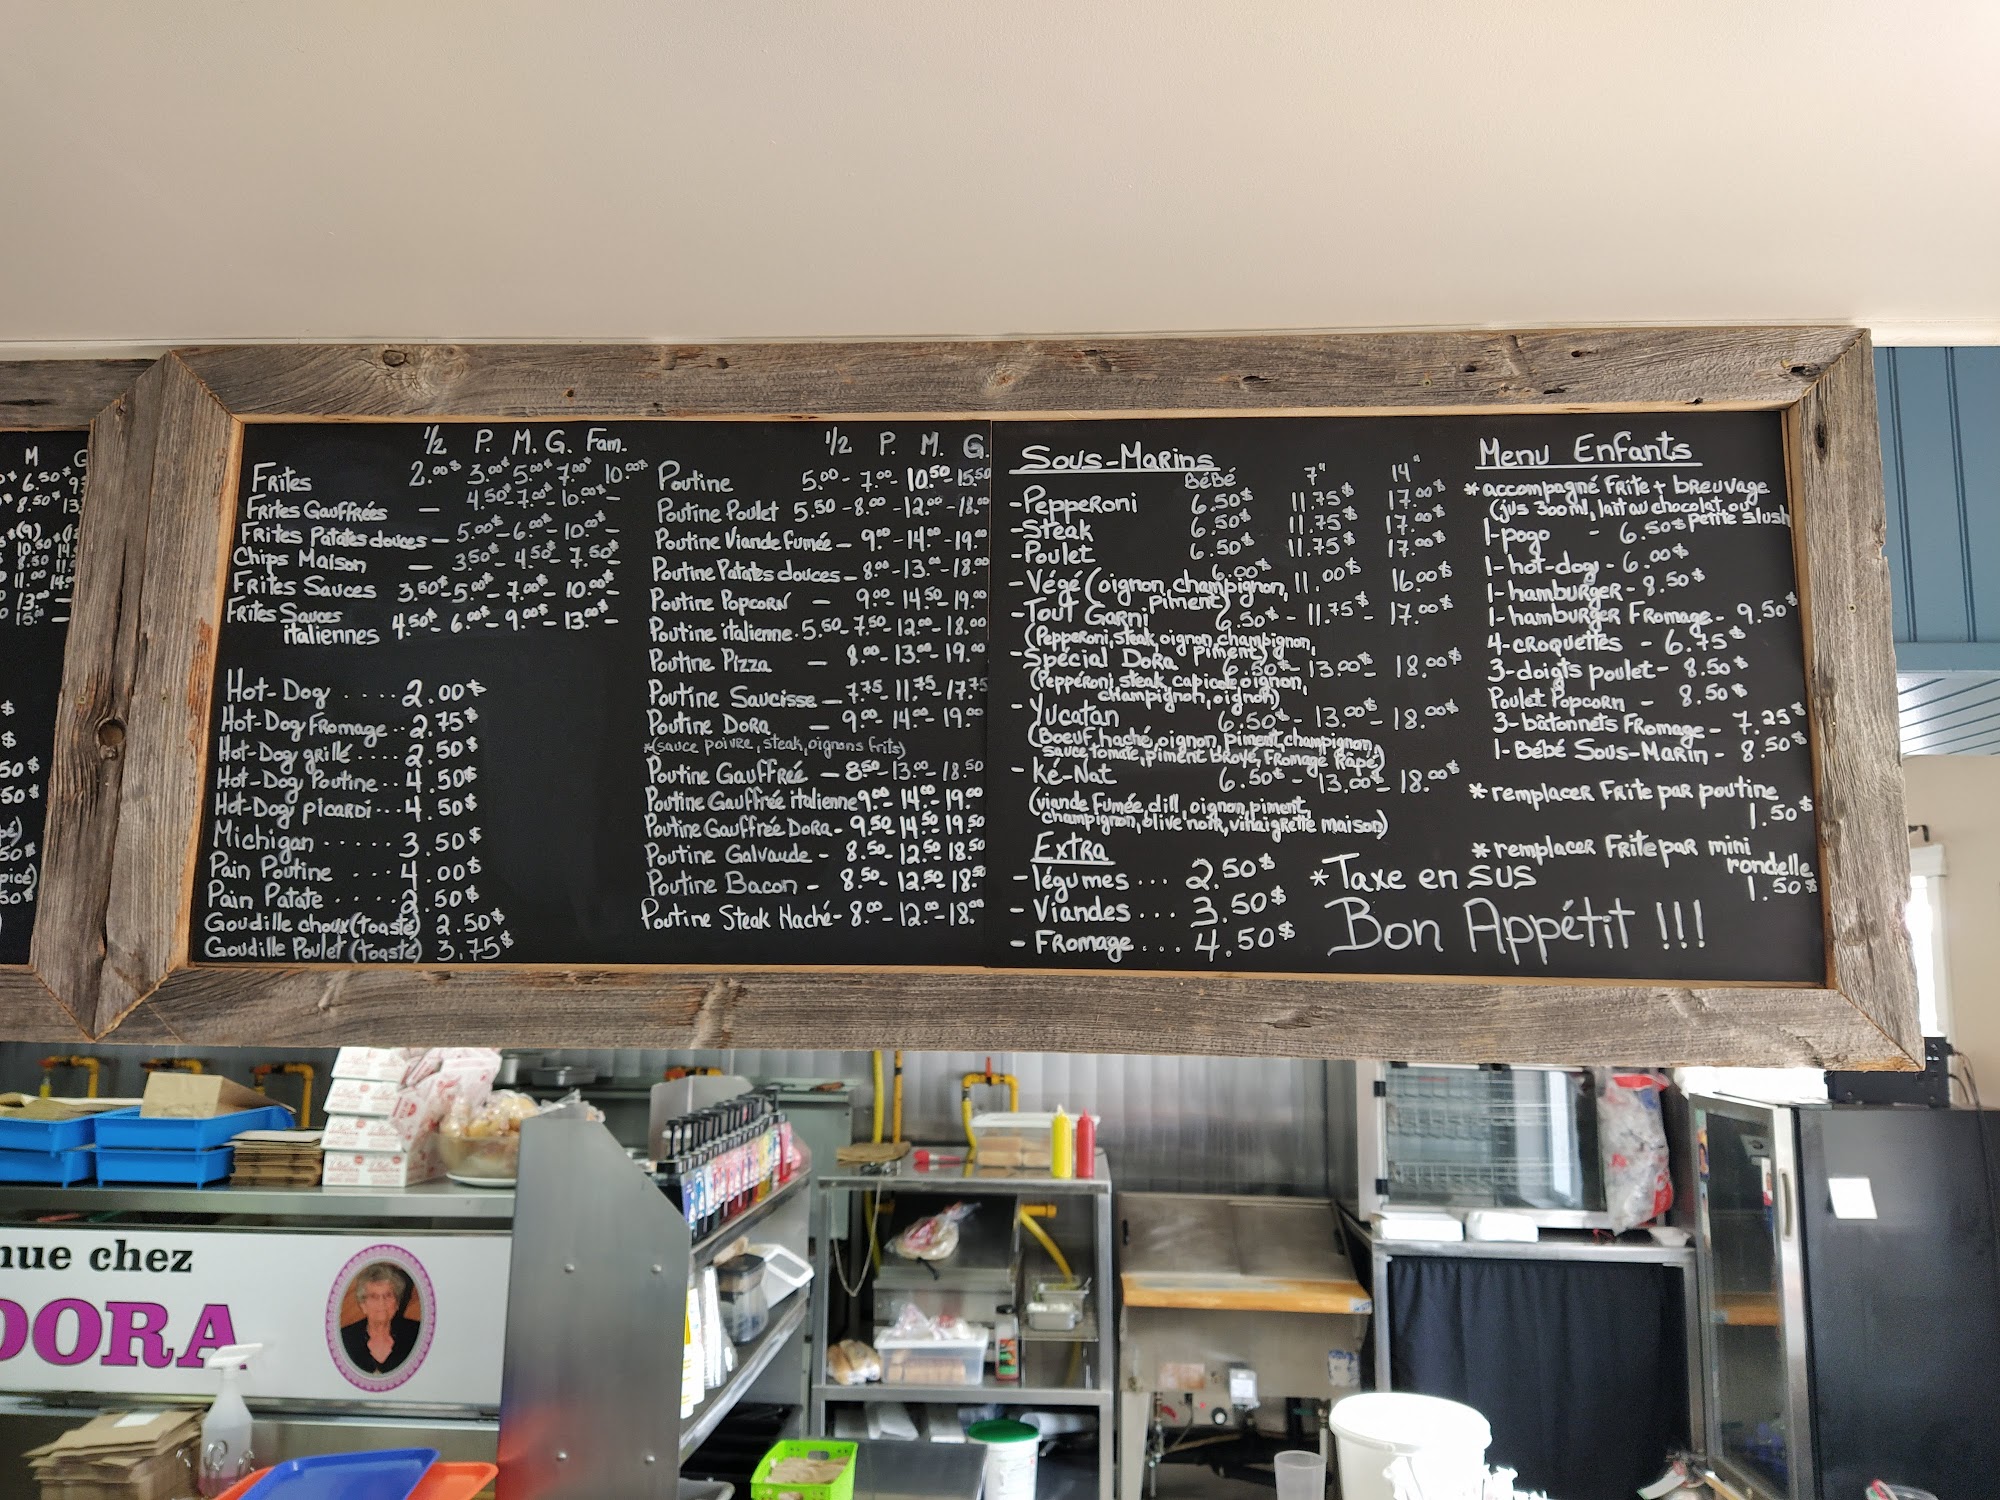 M G
6.50$
8.50$ 13.
(9)
10.50$ 14.
8.50 11.
11.00 14.
13.00 -
15. -
$
$
50$
50$
50$
50$
½ P. M. G. Fam.
Frites 2.00$ 3.00$ 5.00$ 7.00$ 10.00$
Frites Gauffrées - 4.50$ - 7.00$ - 10.00$ -
Frites Patates douces - 5.00$ - 6.00$ - 10.00$ -
Chips Maison - 3.50$ - 4.50$ - 7.50$ -
Frites Sauces 3.50$ - 5.00$ - 7.00$ - 10.00$ -
Frites Sauces
italiennes 4.50$ - 6.00$ - 9.00$ - 13.00$ -
Hot-Dog .... 2.00$
Hot-Dog Fromage .. 2.75$
Hot-Dog grillé .... 2.50$
Hot-Dog Poutine .. 4.50$
Hot-Dog picardi .. 4.50$
Michigan ..... 3.50$
Pain Poutine ... 4.00$
Pain Patate .... 2.50$
Goudille choux (toasté) 2.50$
Goudille Poulet (toasté) 3.75$
½ P. M. G.
Poutine 5.00 - 7.00 - 10.50 - 15.50
Poutine Poulet 5.50 - 8.00 - 12.00 - 18.00
Poutine Viande Fumée - 9.00 - 14.00 - 19.00
Poutine Patates douces - 8.00 - 13.00 - 18.00
Poutine Popcorn - 9.00 - 14.50 - 19.00
Poutine italienne. 5.50 - 7.50 - 12.00 - 18.00
Poutine Pizza - 8.00 - 13.00 - 19.00
Poutine Saucisse - 7.75 - 11.75 - 17.75
Poutine Dora - 9.00 - 14.00 - 19.00
*(sauce poivre, steak, oignons frits)
Poutine Gauffrée - 8.50 - 13.00 - 18.50
Poutine Gauffrée italienne 9.00 - 14.00 - 19.00
Poutine Gauffrée Dora - 9.50 - 14.50 - 19.50
Poutine Galvaude - 8.50 - 12.50 - 18.50
Poutine Bacon - 8.50 - 12.50 - 18.50
Poutine Steak Haché - 8.00 - 12.00 - 18.00
Sous-Marins
BéBé 7" 14"
-Pepperoni 6.50$ 11.75$ 17.00$
-Steak 6.50$ 11.75$ 17.00$
-Poulet 6.50$ 11.75$ 17.00$
-Végé (oignon, champignon, 6.00$ 11.00$ 16.00$
piment)
-Tout Garni 6.50$ - 11.75$ - 17.00$
(Pepperoni, steak, oignon, champignon,
piment)
-Spécial Dora 6.50$ - 13.00$ - 18.00$
(Pepperoni, steak, capicole, oignon,
champignon, oignon)
-Yucatan 6.50$ - 13.00$ - 18.00$
(Boeuf haché, oignon, piment, champignon,
sauce tomate, piment broyé, fromage râpé)
-Ké-Nat 6.50$ - 13.00$ - 18.00$
(viande fumée, dill, oignon, piment,
champignon, olive noir, vinaigrette maison)
Extra
-légumes ... 2.50$
-Viandes ... 3.50$
-Fromage ... 4.50$
Menu Enfants
*accompagné Frite + breuvage
(jus 300ml, lait au chocolat, ou
petite slush
1-pogo - 6.50$
1-hot-dog - 6.00$
1-hamburger - 8.50$
1-hamburger Fromage - 9.50$
4-croquettes - 6.75$
3-doigts poulet - 8.50$
Poulet Popcorn - 8.50$
3-bâtonnets Fromage - 7.25$
1-Bébé Sous-Marin - 8.50$
*remplacer Frite par poutine
1.50$
*remplacer Frite par mini
rondelle
1.50$
*Taxe en sus
Bon Appétit !!!
nue chez
DORA